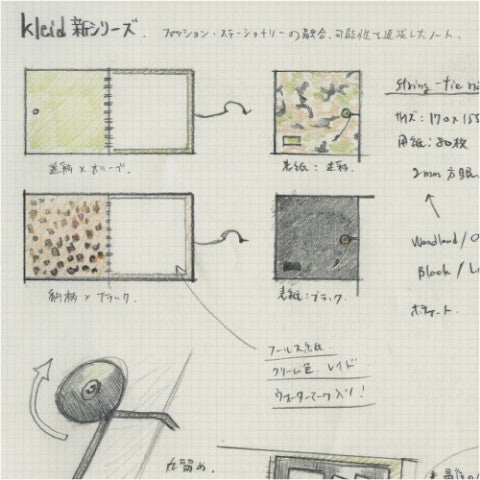 kleid 新シリーズ.
ファッション・ステーショナリーの融合、可能性を追求したノート.
string-tie no
サイズ:170×155
用紙:80枚
2mm 方眼.
迷彩×オリーブ.
表紙:迷彩.
Woodland/O
Black/Le
豹柄×ブラック.
表紙:ブラック.
ポケット.
フールス紙
クリーム色 レイド
ウォーターマーク入り!
丸留め.